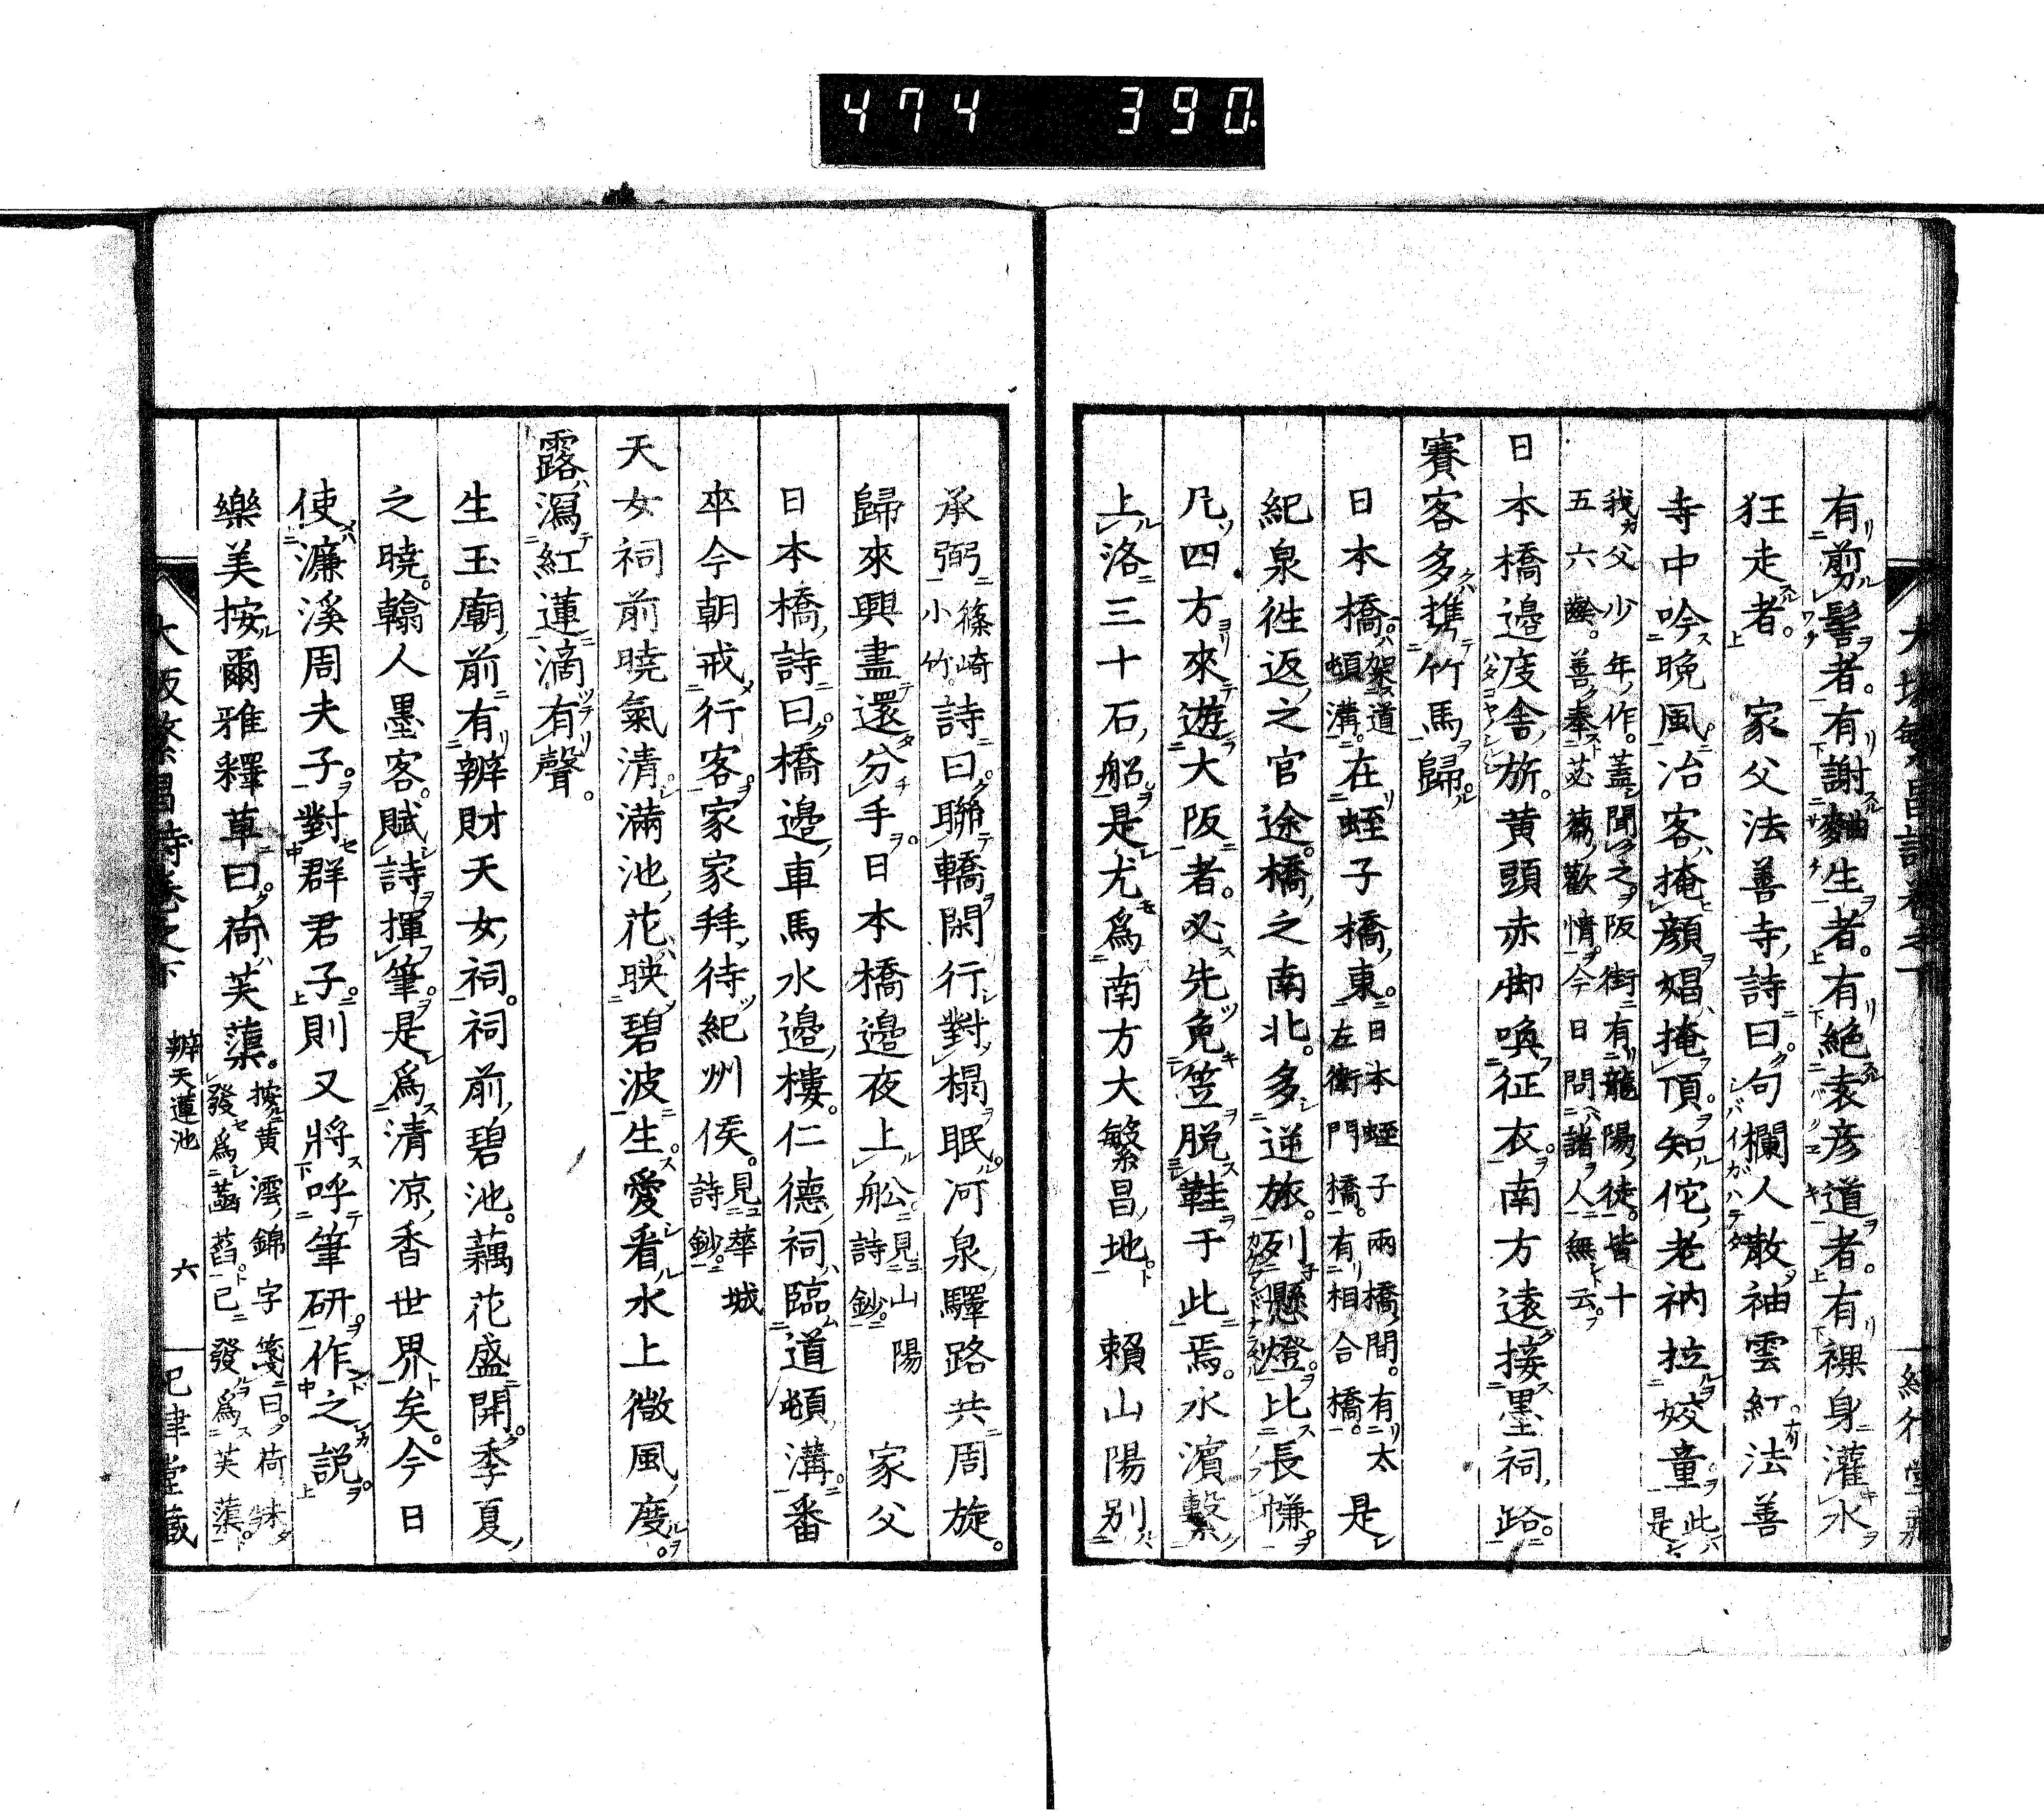 474 390
有剪髻者。有謝麹生者。有絕袁彦道者。有裸身灌水
狂走者。 家父法善寺詩曰。句欄人散袖雲紅。有法善
寺中吟晩風。冶客掩顔娼掩頂。知佗老衲拉姣童。此是
我父少年作。蓋聞之阪街有龍陽徒。皆十
五六齡。善奉苾蒭歡情。今日問諸人無云。
日本橋邊庋舎旅。黄頭赤脚喚征衣。南方遠接墨祠路。
賽客多携竹馬歸。
日本橋。架道頓溝。在蛭子橋東。日本蛭子兩橋間。有太左衛門橋。有相合橋。是
紀泉徃返之官途。橋之南北。多逆旅。列懸燈。比長㡘。
凢四方來遊大阪者。必先免笠脱鞋于此焉。水濱繫
上洛三十石船。是尤爲南方大繁昌地。 賴山陽别
承弼篠崎小竹。詩曰。聯轎閑行對榻眠。河泉驛路共周旋。
歸來興盡還分手。日本橋邊夜上舩。見山陽詩鈔。 家父
日本橋詩曰。橋邉車馬水邉樓。仁德祠臨道頓溝。番
卒今朝戒行客。家家拜待紀州侯。見華城詩鈔。
天女祠前曉氣清。滿池花映碧波生。愛看水上微風度。
露瀉紅蓮滴有聲。
生玉廟前有辨財天女祠。祠前碧池。藕花盛開。季夏
之曉。翰人墨客。賦詩揮筆。是爲清凉香世界矣。今日
使濂溪周夫子。對群君子。則又將呼筆研。作之説
樂美按爾雅釋草曰。荷芙蕖。按黄澐錦字箋曰。荷未發爲菡萏。已發爲芙蕖。
辨天蓮池 六